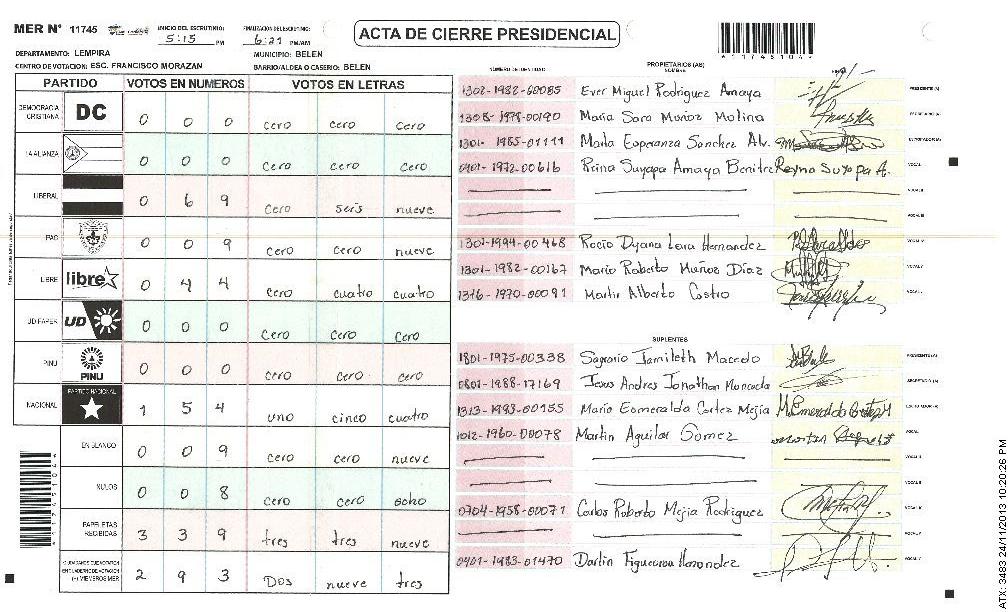 MER N° 11745
INICIO DEL ESCRUTINIO: 5:15 PM
FINALIZACION DEL ESCRUTINIO: 6:21 PM/AM
ACTA DE CIERRE PRESIDENCIAL
DEPARTAMENTO: LEMPIRA
MUNICIPIO: BELEN
CENTRO DE VOTACION: ESC. FRANCISCO MORAZAN
BARRIO/ALDEA O CASERIO: BELEN
PARTIDO VOTOS EN NUMEROS VOTOS EN LETRAS
DEMOCRACIA CRISTIANA DC 0 0 0 cero cero cero
LA ALIANZA 0 0 0 cero cero cero
LIBERAL 0 6 9 cero seis nueve
PAC 0 0 9 cero cero nueve
LIBRE libre 0 4 4 cero cuatro cuatro
UD FAPER UD 0 0 0 cero cero cero
PINU PINU 0 0 0 cero cero cero
NACIONAL PARTIDO NACIONAL 1 5 4 uno cinco cuatro
EN BLANCO 0 0 9 cero cero nueve
NULOS 0 0 8 cero cero ocho
PAPELETAS RECIBIDAS 3 3 9 tres tres nueve
MIEMBROS MER 2 9 3 Dos nueve tres
NUMERO DE IDENTIDAD
PROPIETARIOS (AS)
NOMBRE
FIRMA
1302-1982-00085 Ever Miguel Rodriguez Amaya PRESIDENTE (A)
1308-1979-00190 Maria Sara Muñoz Molina SECRETARIO (A)
1301-1985-01111 Marta Esperanza Sanchez Alv. ESCRUTADOR (A)
0401-1972-00616 Reina Suyapa Amaya Benitez Reyna Suyapa A. VOCAL I
VOCAL II
VOCAL III
1301-1994-00468 Rocio Dyana Lara Hernandez VOCAL IV
1301-1982-00167 Mario Roberto Muñoz Díaz VOCAL V
1316-1970-00091 Martir Alberto Castro
SUPLENTES
1801-1975-00338 Sagrario Jamileth Macedo PRESIDENTE (A)
0801-1988-17169 Jesus Andres Jonathan Moncada SECRETARIO (A)
1313-1983-00155 Maria Esmeralda Cortez Mejia ESCRUTADOR (A)
1012-1960-00078 Martin Aguilar Gomez VOCAL I
VOCAL II
0704-1958-00071 Carlos Roberto Mejia Rodriguez
0401-1983-01470 Darlin Figueroa Hernandez
ATX: 3483 24/11/2013 10:20:26 PM